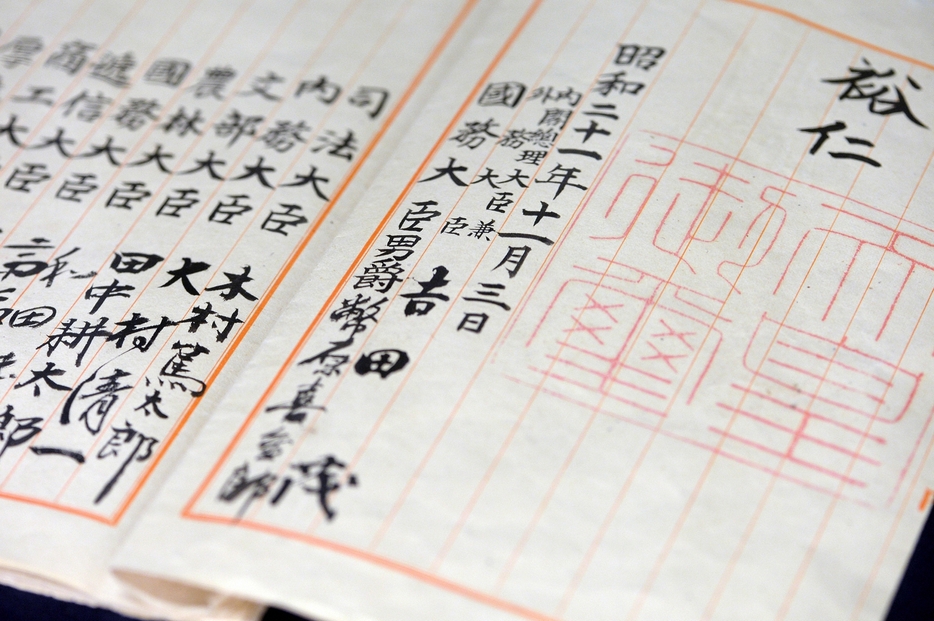 裕仁
天皇御璽
昭和二十一年十一月三日
内閣總理大臣兼
外務大臣
吉田茂
國務大臣男爵幣原喜重郎
司法大臣木村篤太郎
内務大臣大村清一
文部大臣田中耕太郎
農林大臣和田
國務大臣
遞信大臣
商工大臣
厚